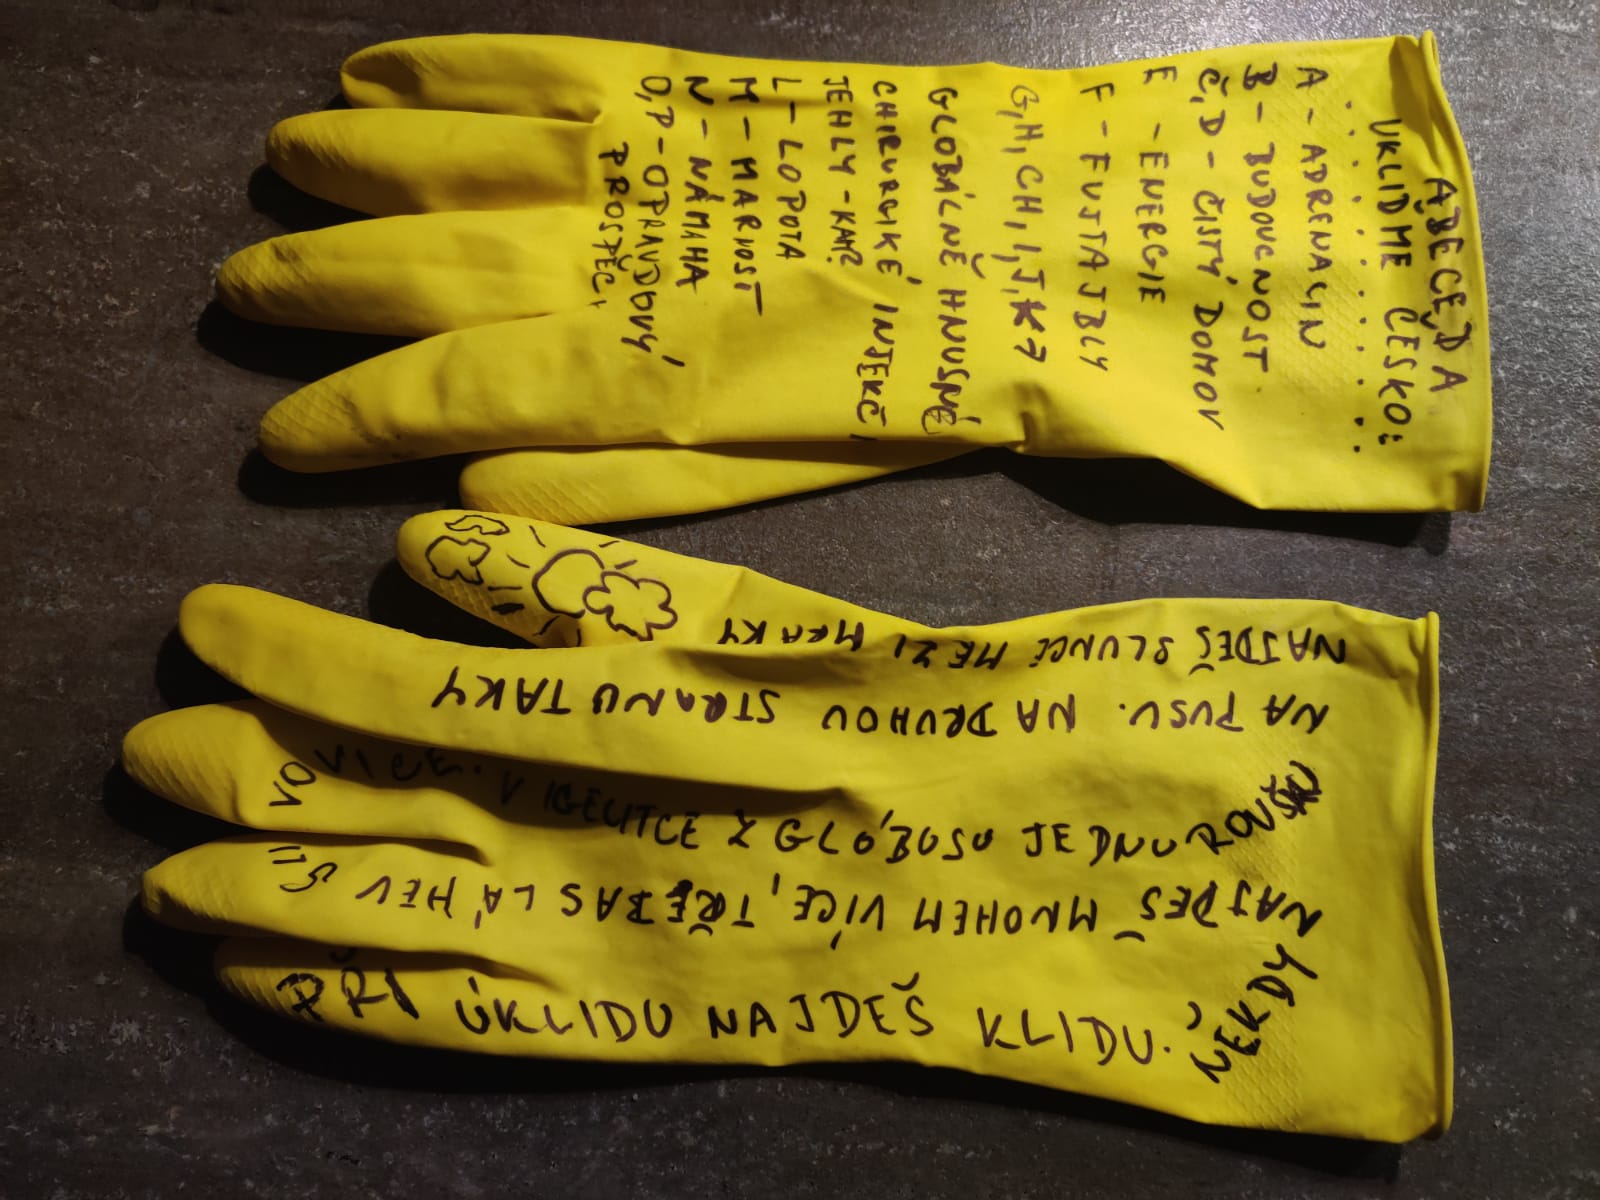 ABECEDA
UKLIDME ČESKO:
A - ADRENALIN
B - BUDOUCNOST
Č, D - ČISTÝ DOMOV
E - ENERGIE
F - FUJTAJBLY
G, H, CH, I, J, K -
GLOBÁLNĚ HNUSNÉ
CHIRURGIKÉ INJEKČ,
JEHLY - KAM?
L - LOPOTA
M - MARNOST
N - NÁMAHA
O, P - OPRAVDOVÝ
PROSPĚCH
PŘI ÚKLIDU NAJDEŠ KLIDU. NĚKDY
NAJDEŠ MNOHEM VÍCE, TŘEBAS LÁHEV SLI
VOVICE. V IGELITCE Z GLÓBUSU JEDNU ROUŠKU
NA PUSU. NA DRUHOU STRANU TAKY
NAJDEŠ SLUNCE MEZI MRAKY